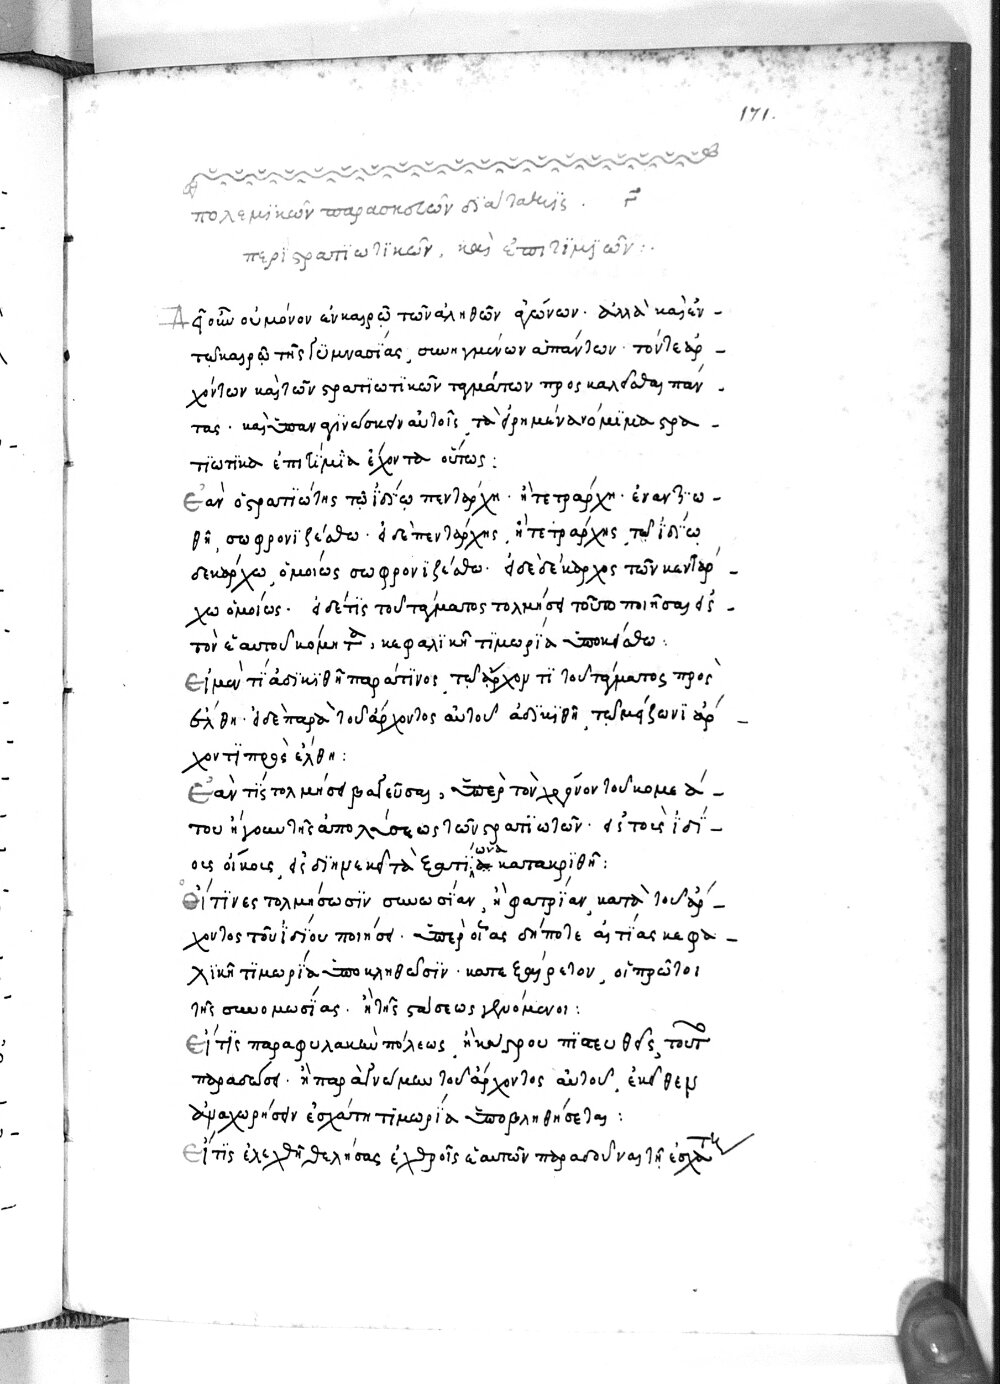 171.
πολεμϊκῶν παρασκευῶν διάταξις .
περὶ στρατϊωτϊκῶν, καὶ ἐπιτϊμϊῶν:.
οὖν οὐ μόνον ἐν καιρῶ τῶν ἀληθῶν ἀγώνων· ἀλλὰ καὶ ἐν
τῶ καιρῶ τῆς γϋμνασΐας, συνηγμένων ἁπάντων· τόν τε ἀρ
χόντων καὶ τῶν στρατϊωτϊκῶν ταγμάτων προσκαλεῖσθαι πάν
τας· καὶ ὑπαναγϊνώσκειν αὐτοῖς, τὰ εἰρημένα νόμϊμα στρα
τϊωτικὰ ἐπιτίμϊα ἔχοντα οὕτως:
Ἐὰν ὁ στρατϊώτης τῶ ἰδΐω πεντάρχη· ἢ τετράρχη· ἐναντϊω
θῆ, σωφρονϊζέσθω· εἰ δὲ πεντάρχης, ἢ τετράρχης, τῶ ἰδΐω
δεκάρχω, ὁμοίως σωφρονϊζέσθω· εἰ δὲ δέκαρχος τῶν κεντάρ
χω ὁμοίως· εἰ δέ τϊς τοῦ τάγματος τολμήσει τοῦτο ποιῆσαι εἰς
τὸν ἑαυτοῦ κόμητα, κεφαλϊκῆ τϊμωρΐα ὑποκείσθω:
Εἰ μέν τι ἀδϊκϊθῆ παρά τϊνος, τῶ ἄρχοντϊ τοῦ τάγματος προσ
έλθη· εἰ δὲ παρὰ τοῦ ἄρχοντος αὐτοῦ ἀδϊκϊθῆ, τῶ μείζωνϊ ἄρ
χοντϊ προσέλθη:
Ἐὰν τίς τολμήσει βατεῦσαι, ὑπὲρ τὸν χρόνον τοῦ κομεά
του ἤγουν τῆς ἀπολύσεως τῶν στρατϊωτῶν· εἰς τοὺς ἰδΐ
οις οἴκοις,
Οἵτϊνες τολμήσωσϊν συνωσίαν, ἢ φατρΐαν, κατὰ τοῦ ἄρ
χοντος τοῦ ἰδίου ποιῆσαι· ὑπὲρ οἵας δήποτε αἰτίας κεφα
λϊκῆ τϊμωρΐα ὑποκληθῶσϊν· κατεξαίρετον, οἱ πρῶτοι
τῆς συνομωσΐας· ἢ τῆς στάσεως γενόμενοι:
Εἴ τϊς παραφυλακὴν πόλεως, ἢ κάστρου πϊστευθεὶς, τοῦτο
παραδώσει· ἢ παρὰ γνώμην τοῦ ἄρχοντος αὐτοῦ, ἐκεῖθεν
ἀναχωρήσειν ἐσχάτη τϊμωρΐα ὑποβληθήσεται:
Εἴ τϊς ἐλεγχθῆ θελήσας ἐχθροῖς ἑαυτὸν παραδοῦναι τῆ ἐσχάτη